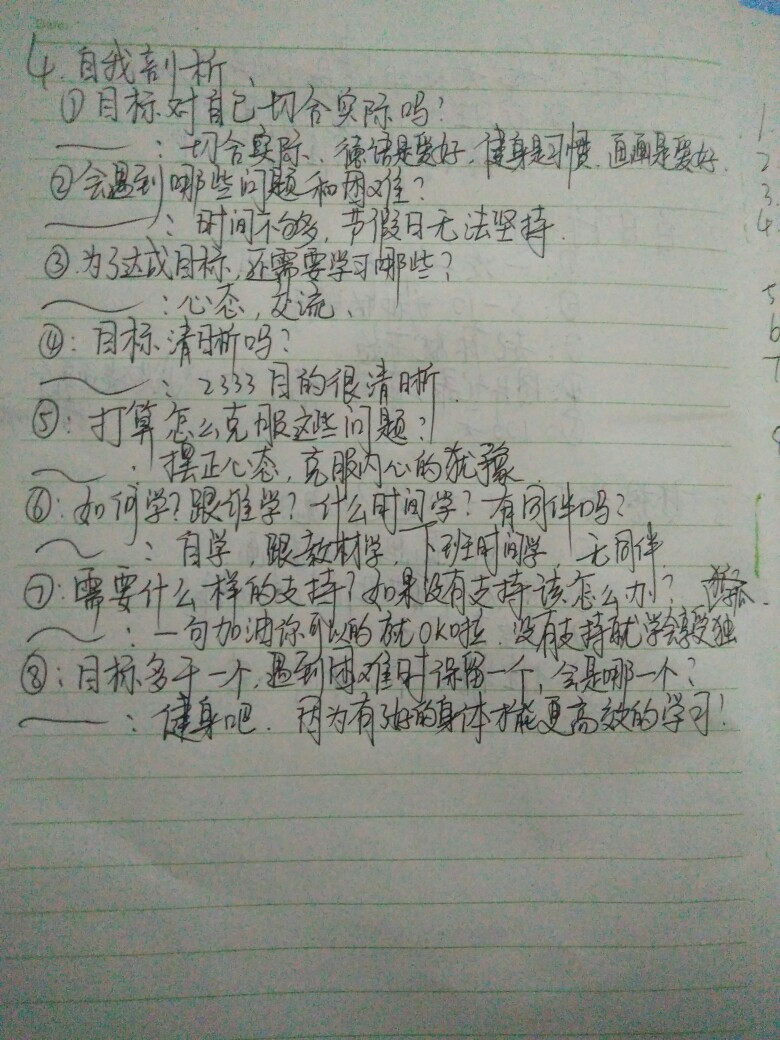 4. 自我剖析、
①目标对自己切合实际吗?
——: 切合实际、德语是爱好, 健身是习惯. 画画是爱好.
②会遇到哪些问题和困难?
——: 时间不够多, 节假日无法坚持.
③为了达成目标, 还需要学习哪些?
——: 心态, 交流、
④: 目标清晰吗?
——: 2333目的很清晰.
⑤: 打算怎么克服这些问题?
——: 摆正心态, 克服内心的犹豫.
⑥: 如何学? 跟谁学? 什么时间学? 有同伴吗?
——: 自学, 跟教材学, 下班时间学, 无同伴.
⑦: 需要什么样的支持? 如果没有支持该怎么办?
——: 一句加油你可以的就OK啦. 没有支持就学会享受独孤.
⑧: 目标多于一个, 遇到困难时保留一个, 会是哪一个?
——: 健身吧. 因为有了好的身体才能更高效的学习!
1
2
3.
4.
5
6
7